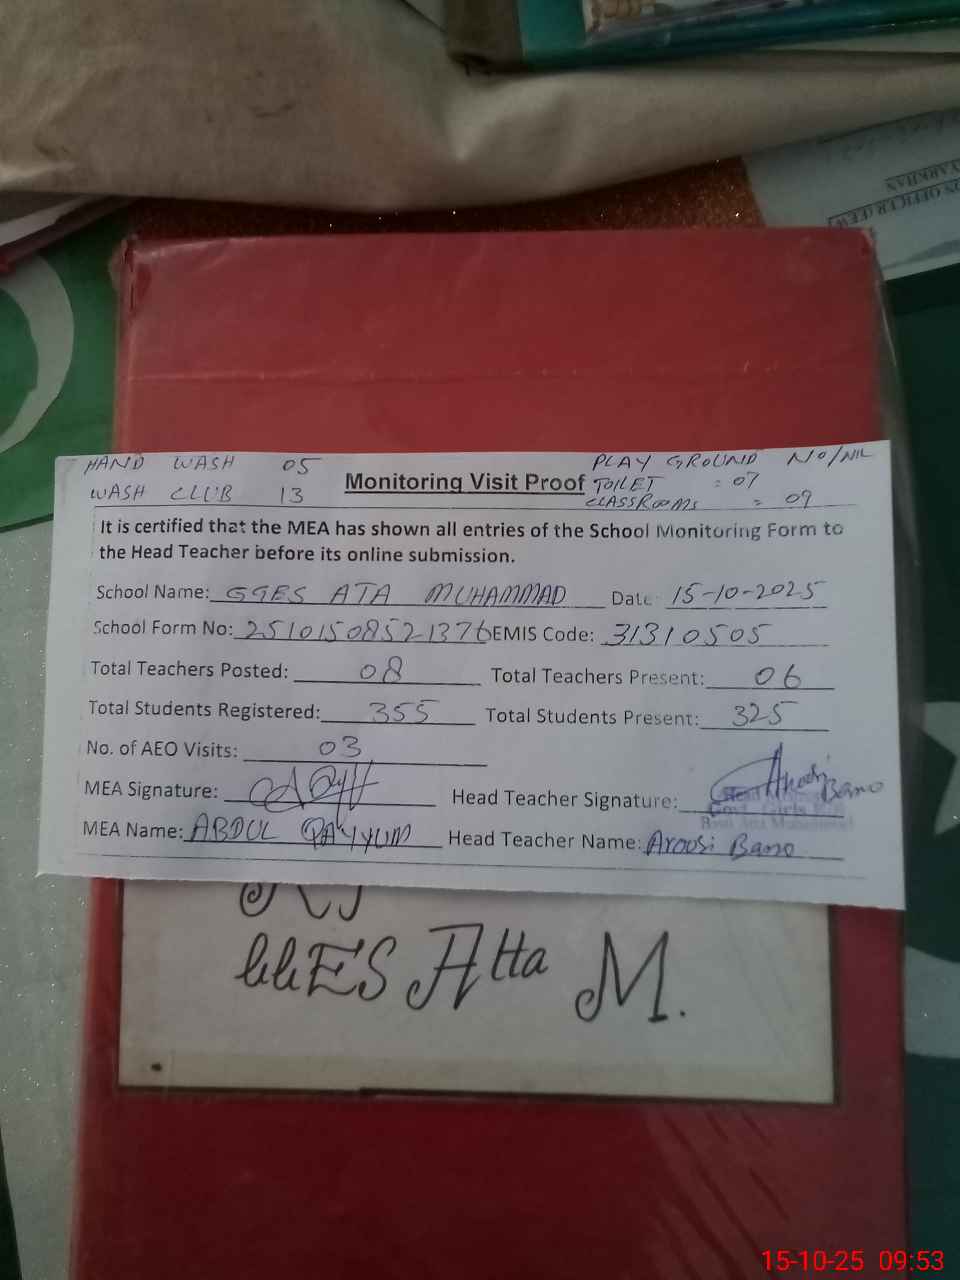 YARKHAN
ON OFFICER (EEW)
HAND WASH 05
PLAY GROUND NO/NIL
WASH CLUB 13
Monitoring Visit Proof
TOILET : 07
CLASSROOMS = 09
It is certified that the MEA has shown all entries of the School Monitoring Form to
the Head Teacher before its online submission.
School Name: GGES ATA MUHAMMAD Date 15-10-2025
School Form No: 25101508521376 EMIS Code: 31310505
Total Teachers Posted: 08 Total Teachers Present: 06
Total Students Registered: 355 Total Students Present: 325
No. of AEO Visits: 03
MEA Signature: Head Teacher Signature: Aroosi Bano
Govt. Girls
MEA Name: ABDUL QAYYUM Head Teacher Name: Aroosi Bano
GGES Atta M.
15-10-25 09:53